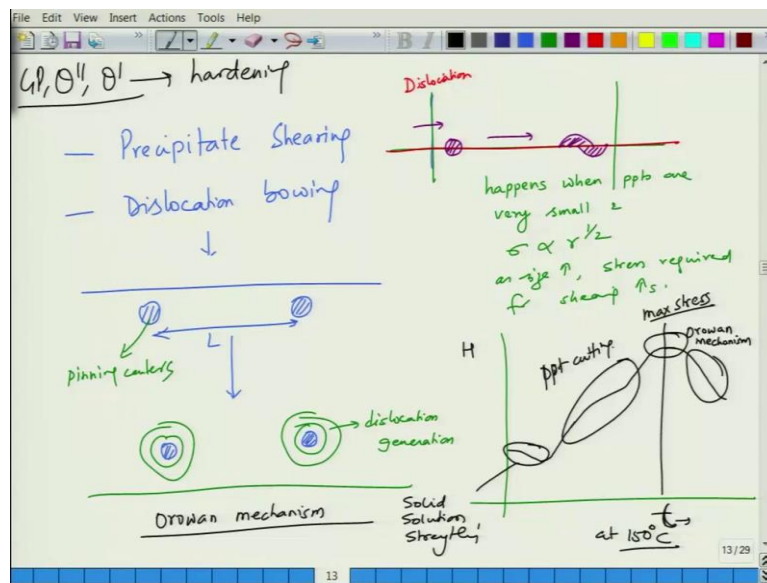 File Edit View Insert Actions Tools Help
GP, θ'', θ' → hardening
— Precipitate Shearing
— Dislocation bowing
L
pinning centers
dislocation
generation
Orowan mechanism
Dislocation
happens when ppts are
very small &
σ ∝ r^1/2
as size ↑, stress required
for shearing ↑s.
max stress
Orowan
mechanism
H
ppt cutting
Solid
Solution
t →
at 150°C
13 / 29
13